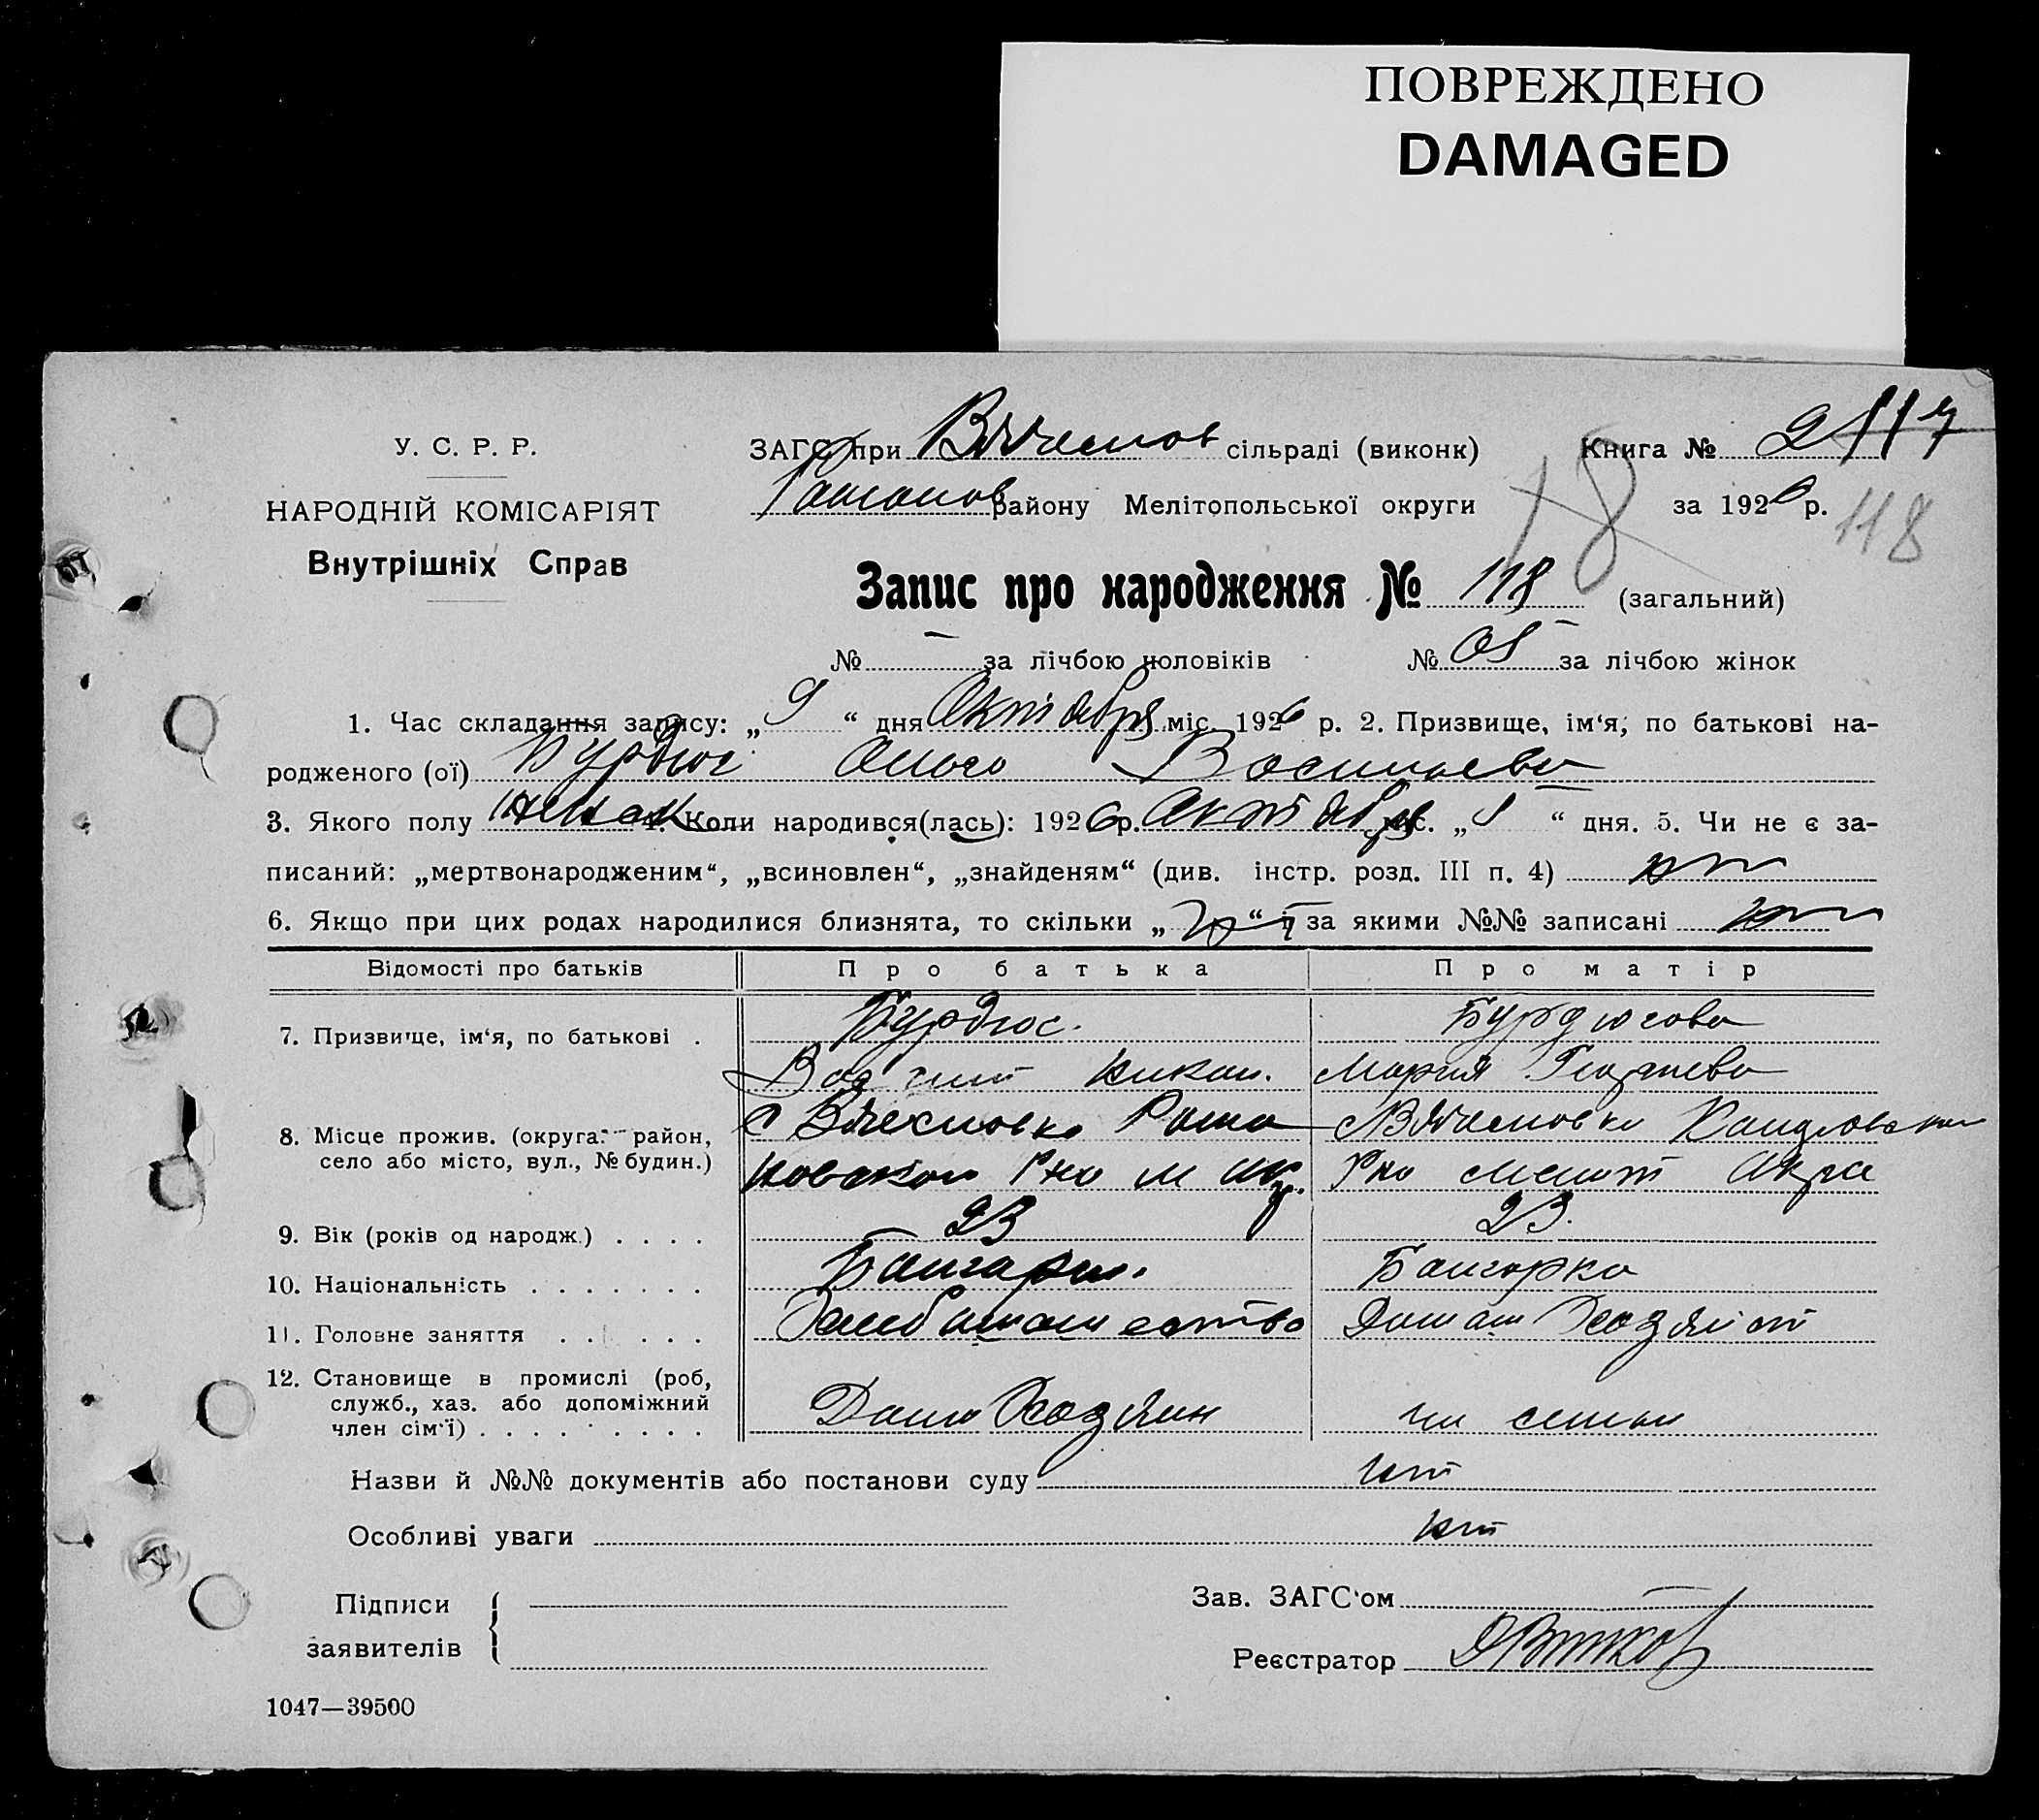 ПОВРЕЖДЕНО
DAMAGED
У. С. Р. Р.
НАРОДНІЙ КОМІСАРІЯТ
Внутрішніх Справ
ЗАГС при Вячеслов сільраді (виконк)
Книга № 2 117
району Мелітопольської округи
за 1926 р.
18 118
Запис про народження № 118 (загальний)
№ — за лічбою чоловіків № за лічбою жінок
1. Час складання запису: „9“ дня Октября міс. 1926 р. 2. Призвище, ім‘я, по батькові на-
родженого (ої) Бурдюг Васильева
3. Якого полу женск 4. Коли народився(лась): 1926 р. Октября міс. „ “ дня. 5. Чи не є за-
писаний: „мертвонародженим“, „всиновлен“, „знайденям“ (див. інстр. розд. III п. 4) нет
6. Якщо при цих родах народилися близнята, то скільки „ “ і за якими №№ записані нет
Відомості про батьків
Про батька
Про матір
7. Призвище, ім‘я, по батькові .
Бурдюг.
Бурдюгова
Василий Никол.
Мария Георгиева
8. Місце прожив. (округа, район,
село або місто, вул., № будин.)
с Вячеславка Рома
Вячеславка
новского Р на М окр.
Р на Мелит Окра
9. Вік (років од народж.) . . . .
23
23.
10. Національність . . . . . . .
Болгарин.
Болгарка
11. Головне заняття . . . . . .
Хлебопашество
Домаш Хозяйст
12. Становище в промислі (роб,
служб., хаз. або допоміжний
член сім‘ї) . . . . . . . . .
Домо Хозяин
чл семьи
Назви й №№ документів або постанови суду нет
Особливі уваги нет
Підписи
заявителів
Зав. ЗАГС‘ом
Реєстратор
1047—39500